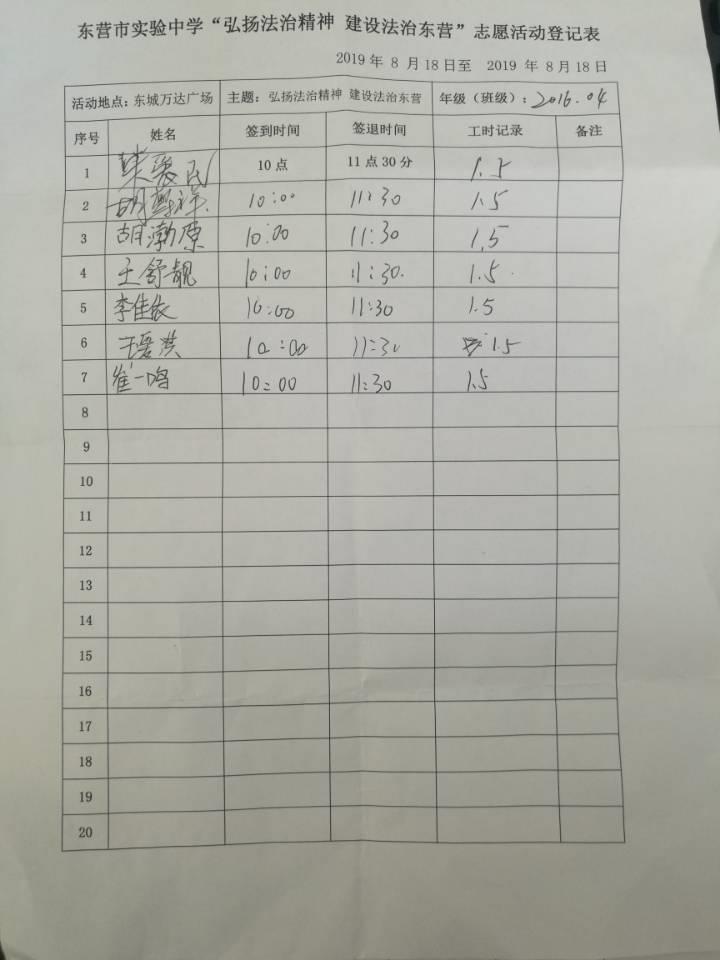 东营市实验中学“弘扬法治精神 建设法治东营”志愿活动登记表
2019 年 8 月 18 日至 2019 年 8 月 18 日
活动地点：东城万达广场 主题：弘扬法治精神 建设法治东营 年级（班级）：2016.04
序号 姓名 签到时间 签退时间 工时记录 备注
1 10 点 11 点 30 分 1.5
2 胡 10:00 11:30 1.5
3 胡渤原 10:00 11:30 1.5
4 王舒靓 10:00 11:30. 1.5.
5 李佳依 10:00 11:30 1.5
6 10:00 11:30 1.5
7 崔一鸣 10:00 11:30 1.5
8
9
10
11
12
13
14
15
16
17
18
19
20